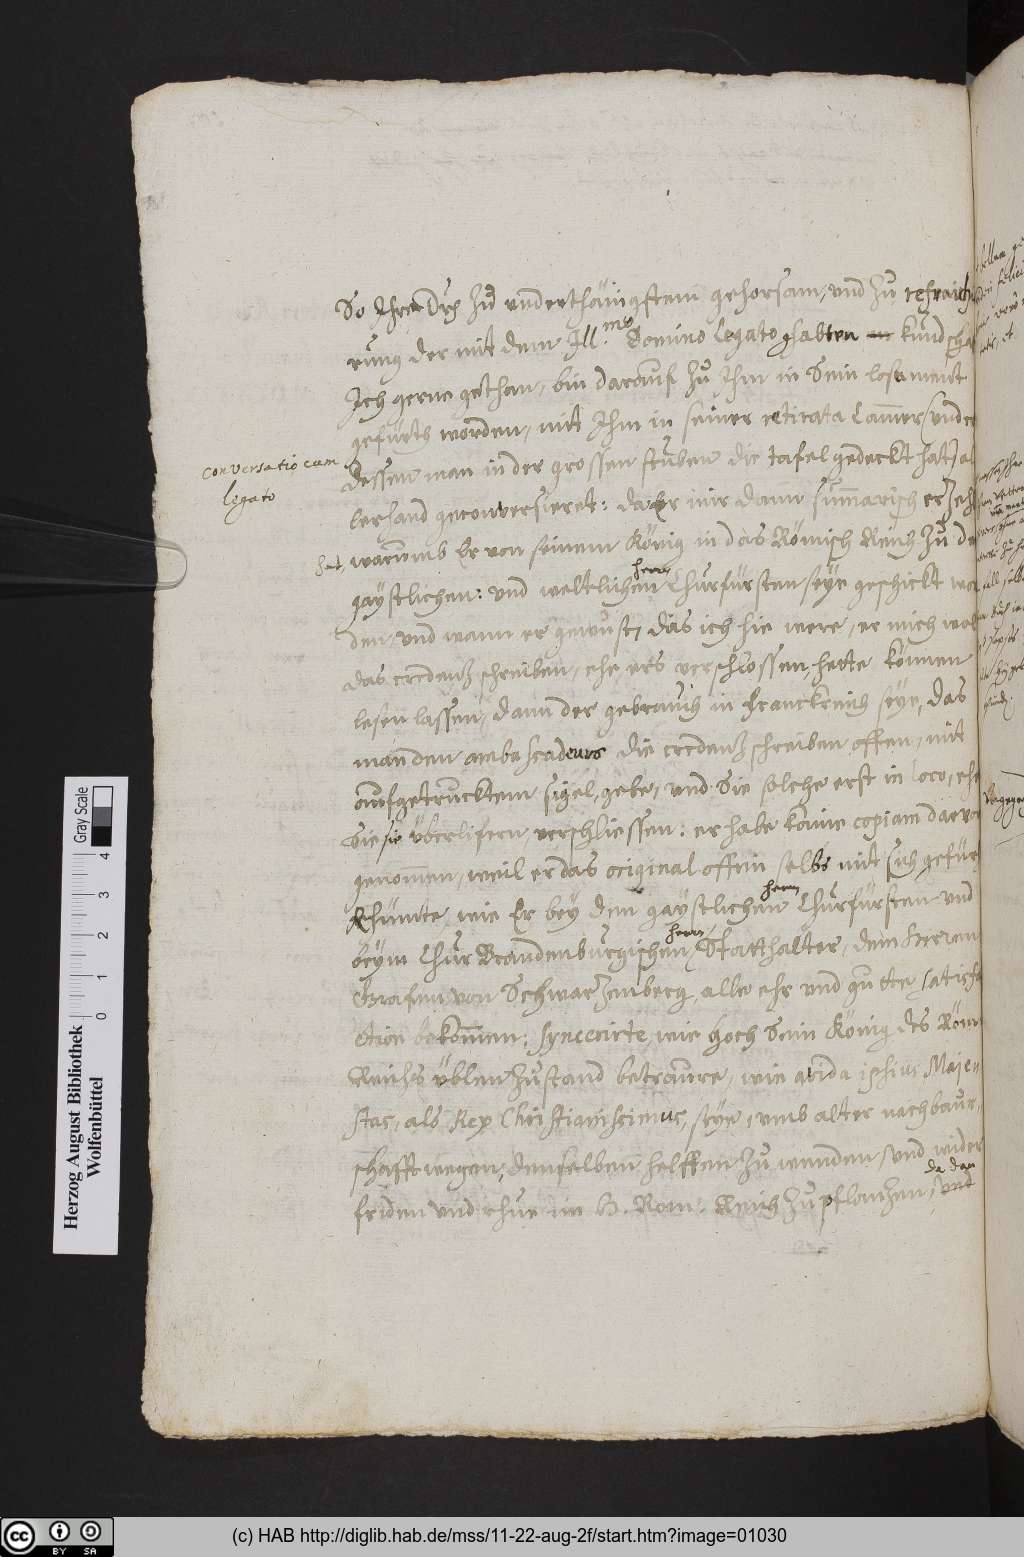 So Ihr Drl. Zu underthänigstem gehorsam, und Zu refraichi
rung der mit dem Ill.mo Domino legato ghabten kundscha
Ich gerne gethan, bin darauff Zu Ihm in Sein losament
gefürth worden, mitt Ihm in seiner retirata Cammer (under
conversatio cum
legato
dessen man in der grossen stuben die tafel gedeckt hat) al
lerhand geconversieret: da Er mir dann summarisch erzehlt
hat,
warumb Er von seinem König in das Römisch Reich Zu de
gaystlichen: und weltlichen herrn Churfürsten seye geschickt wor
den, und wann er gewust, das ich hie were, er mich wol
das credenz schreiben, ehe ers verschlossen, hette können
lesen lassen, dann der gebrauch in Franckreich seye, das
man den ambassadeurs die credenz schreiben offen, mit
auffgetrucktem sigel, gebe, und Sie solche erst in loco, ehe
Sie sie überlifern, verschliessen: er habe kaine copiam darvon
genommen, weil er das original offen selbs mit sich gefür
Rhümte, wie Er bey den gaystlichen herrn Churfürsten und
beym Chur Brandenburgischen herrn Statthalter, dem Herren
Grafen von Schwarzenberg, alle ehr und gutte satisfa
ction bekommen; syncerirte, wie hoch Sein König des Röm
Reichs üblen Zustand betraure, wie avida ipsius Maje-
stas, als Rex Christianissimus, seye, umb alter nachbaur-
schafft wegen, demselben helffen Zu wenden, und wider
friden und rhue im H. Röm. Reich Zu pflanzen, da dan und
Herzog August Bibliothek
Wolfenbüttel
0 1 2 3 4
Gray Scale
cc BY SA
(c) HAB http://diglib.hab.de/mss/11-22-aug-2f/start.htm?image=01030